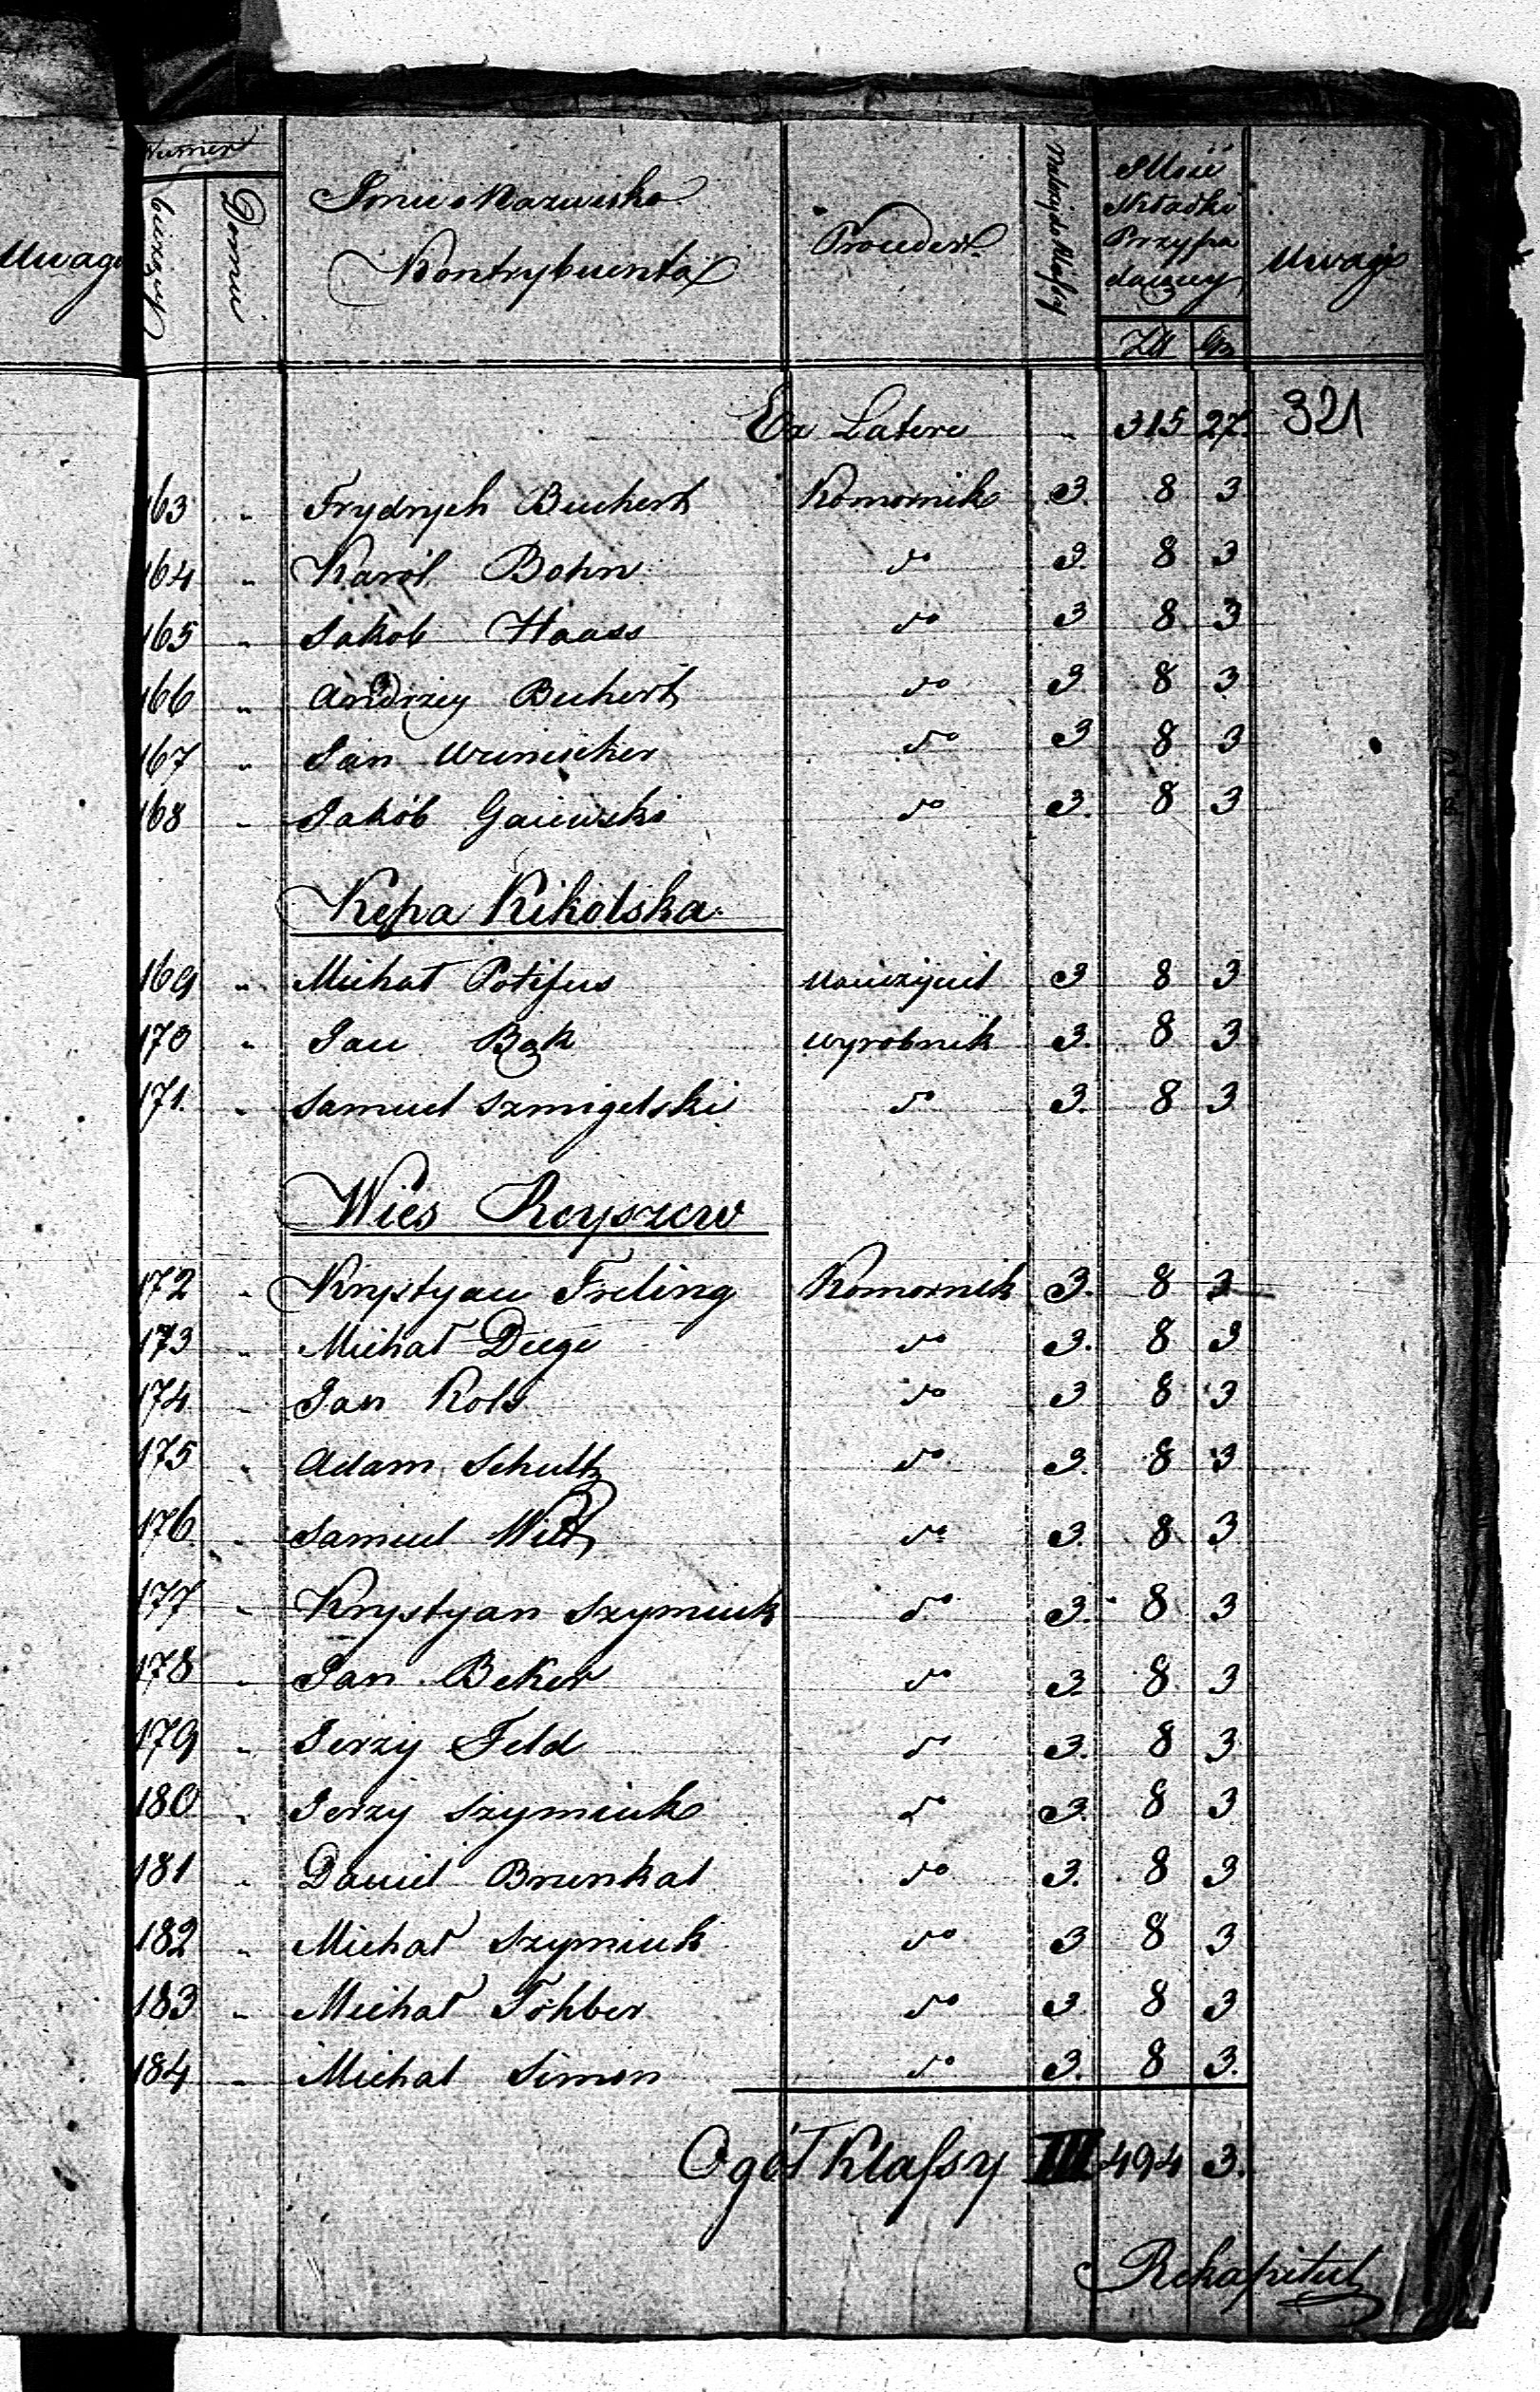 Uwagi
Numer
bieżący
Domu
Imie i Nazwisko
Kontrybuenta
Proceder
Należy do Klassy
Ilość
Składki
Przypa
daiącey
Zł
Gr
Uwagi
Ex Latere " 315 27 321
163 " Frydrych Buchert Komornik 3. 8 3
164 " Karol Bohn do 3. 8 3
165 " Jakob Haass do 3 8 3
166 " Andrzey Buchert do 3 8 3
167 " Jan do 3 8 3
168 " Jakób Gaiewski do 3. 8 3
Kępa Kikolska
169 " Michał Potifus Nauczyciel 3 8 3
170 " Jan Bąk wyrobnik 3. 8 3
171. " Samuel Szmigelski do 3. 8 3
Wies Reyszew
172 " Krystyan Freling Komornik 3. 8 3
173 " Michał Deege do 3. 8 3
174 " Jan Kols do 3 8 3
175 " Adam Schultz do 3. 8 3
176. " Samuel Witt do 3. 8 3
177 " Krystyan Szymiuk do 3. 8 3
178 " Jan Beker do 3. 8 3
179 " Jerzy Feld do 3. 8 3
180 " Jerzy Szymiuk do 3. 8 3
181 " Daniel Brunkal do 3. 8 3
182 " Michał Szymiuk do 3 8 3
183 " Michał Fohber do 3 8 3
184 " Michał Simon do 3. 8 3.
Ogół Klassy III 494 3.
Rekapitul